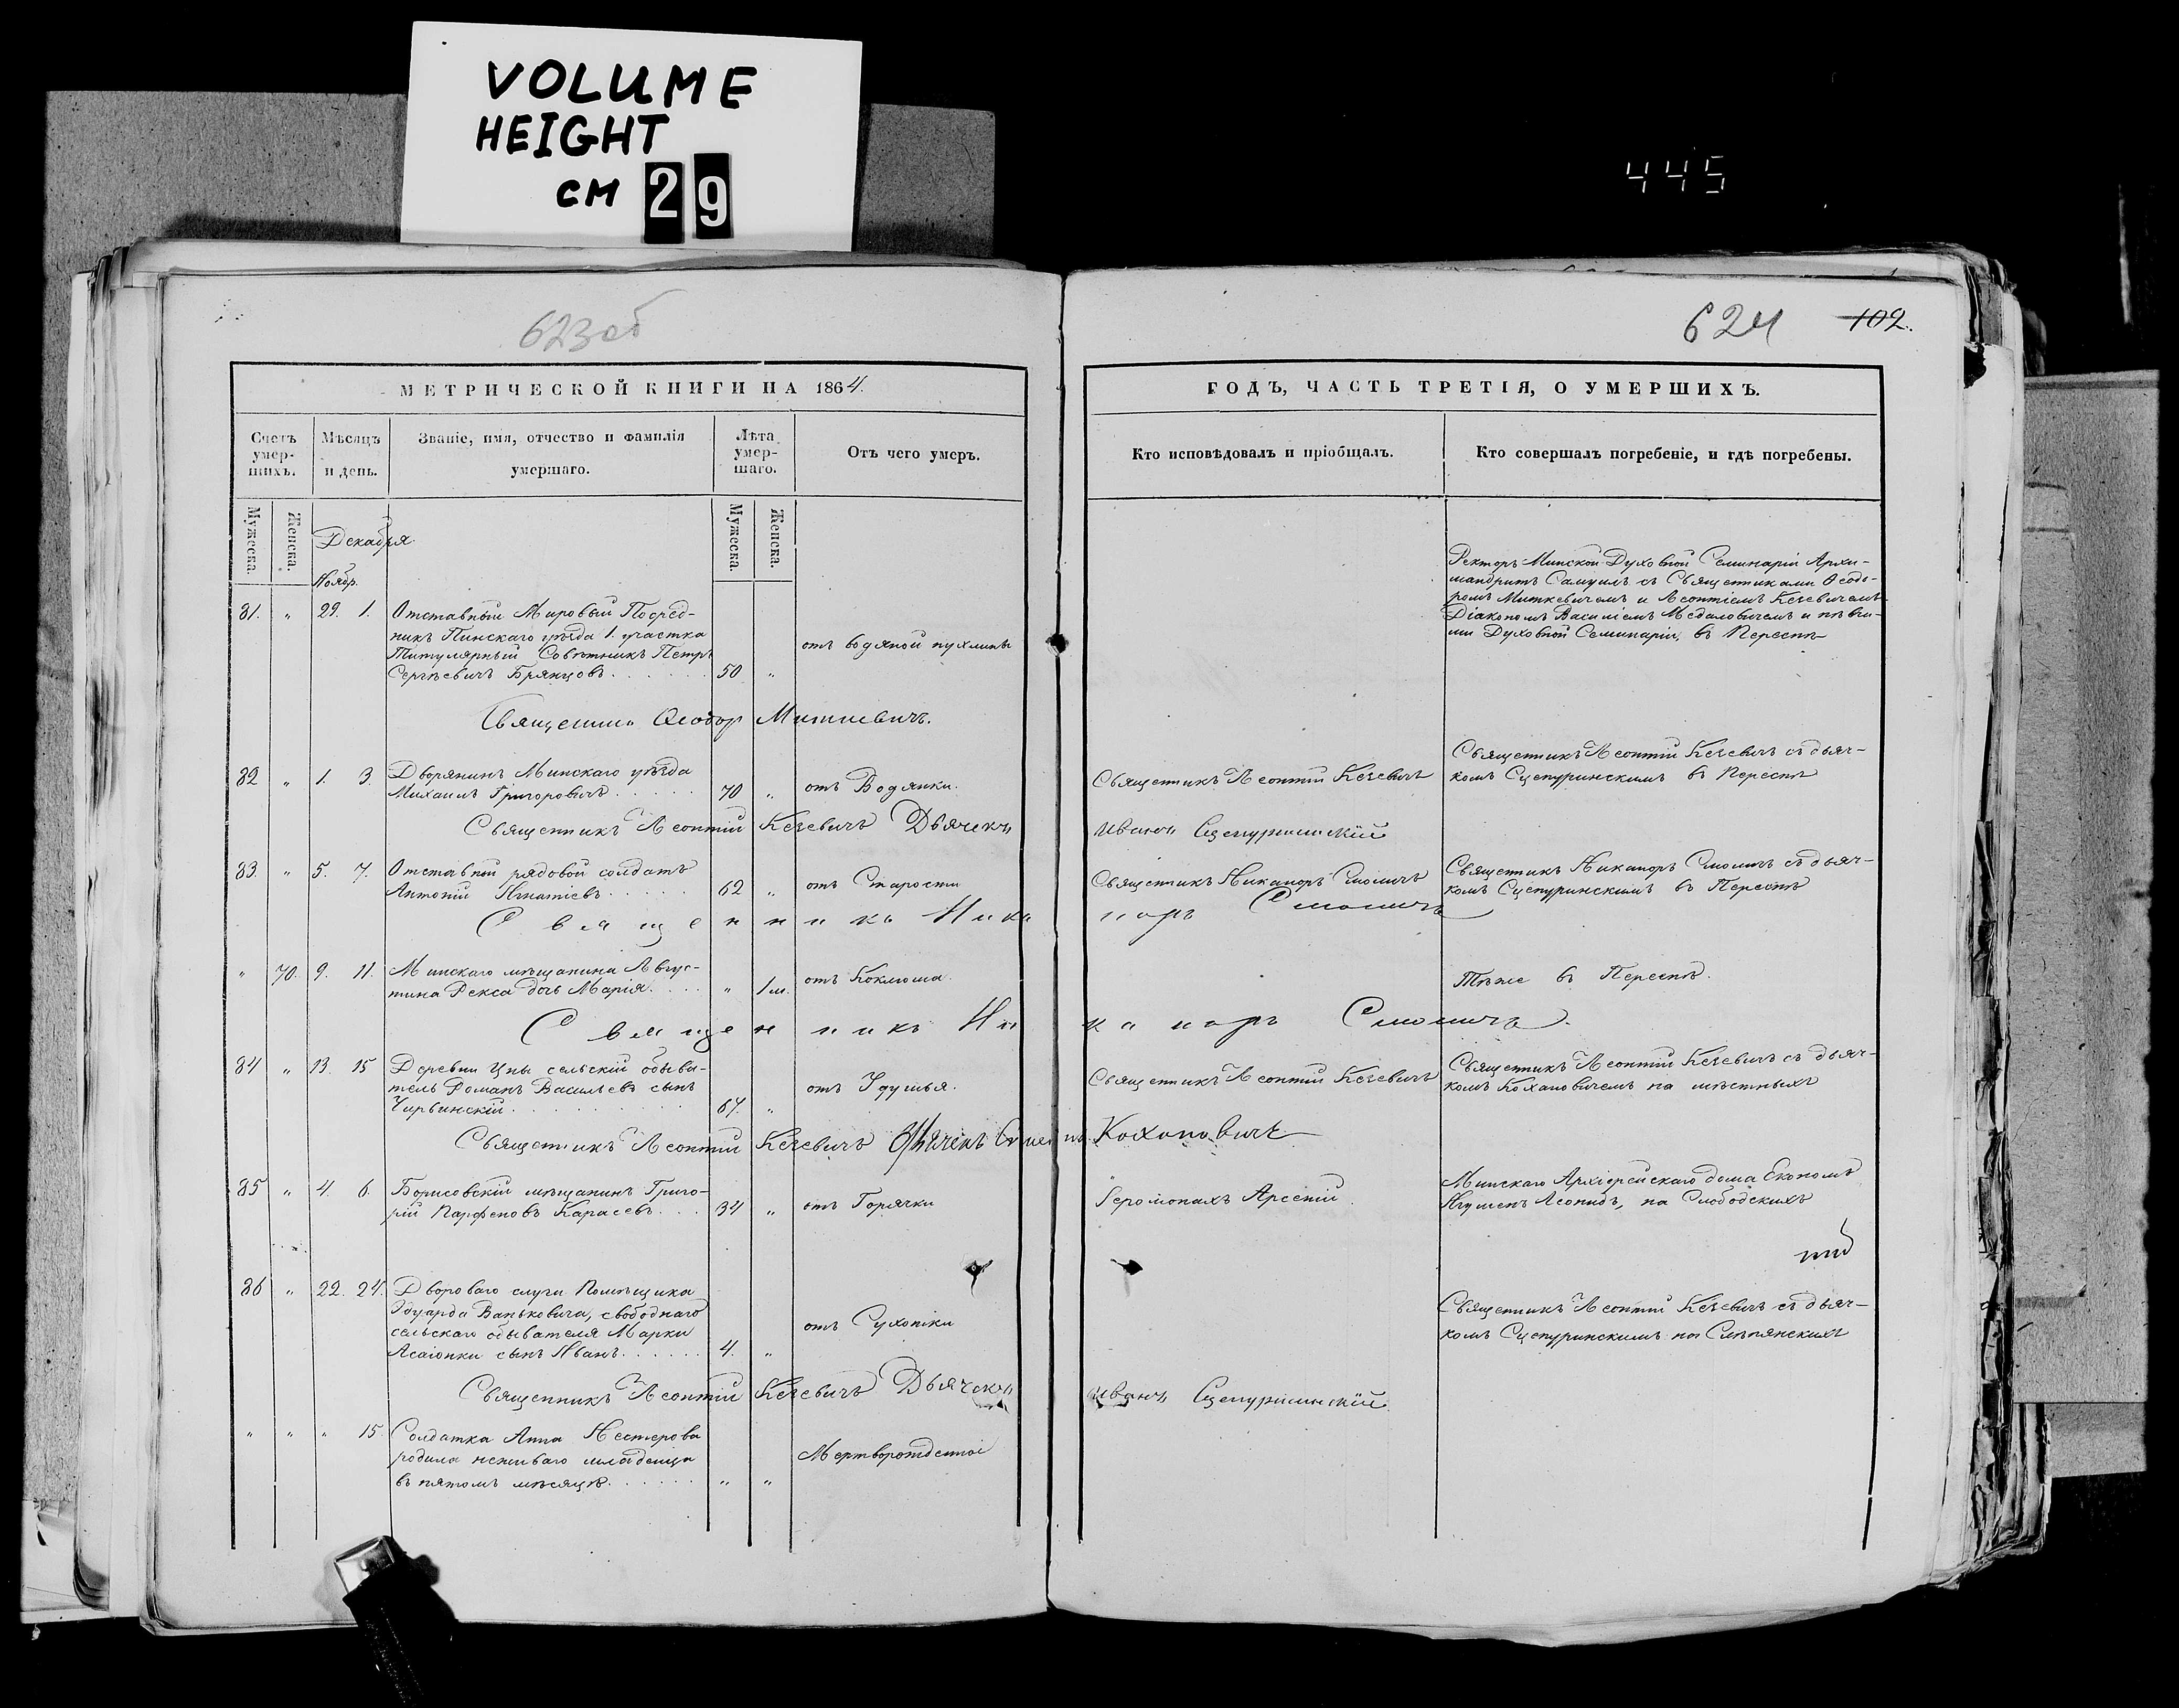 VOLUME
HEIGHT
CM 29
445
623об
624 102.
МЕТРИЧЕСКОЙ КНИГИ НА 1864.
ГОДЪ, ЧАСТЬ ТРЕТІЯ, О УМЕРШИХЪ.
Счетъ умер-шихъ.
Мѣсяцъ и день.
Званіе, имя, отчество и фамилія умершаго.
Лѣта умер-шаго.
Отъ чего умеръ.
Кто исповѣдовалъ и пріобщалъ.
Кто совершалъ погребеніе, и гдѣ погребены.
Мужеска. Женска.
Мужеска. Женска.
Декабря
Ноябр.
81. " 29. 1. Отставный Мировый Посред-
никъ Пинскаго уѣзда 1. участка
Титулярный Совѣтникъ Петръ
Сергѣевичъ Брянцовъ. 50 "
отъ водяной пухлины
Ректоръ Минской Духовной Семинаріи Архи-
мандритъ Самуилъ съ Священниками Ѳеодо-
ромъ Миткевичемъ и Леонтіемъ Кезевичемъ
Діакономъ Василіемъ Медаловичемъ и пѣвчи-
ми Духовной Семинаріи, въ Переспѣ
Ѳеодор Миткевичъ.
82 " 1. 3. Дворянинъ Минскаго уѣзда
Михаилъ Григоровичъ 70 "
отъ Водянки.
Священникъ Леонтій Кезевичъ
Священникъ Леонтій Кезевичъ съ дьяч-
комъ Сцепуринскимъ въ Переспѣ
Священникъ Леонтій Кезевичъ Дьячекъ Иванъ Сцепуринскій
83. " 5. 7. Отставный рядовой солдатъ
Антоній Игнатіевъ 62 "
отъ Старости
Священникъ Никаноръ Смоличъ
Священникъ Никаноръ Смоличъ съ дьяч-
комъ Сцепуринскимъ въ Переспѣ
Священникъ Никаноръ Смоличъ
" 70. 9. 11. Минскаго мѣщанина Авгус-
тина Рекса дочь Марія. " 1 м.
отъ Коклюша.
Тѣже въ Переспѣ.
Священникъ Никаноръ Смоличъ.
84 " 13. 15 Деревни Цны сельскій обыва-
тель Романъ Васильевъ сынъ
Чирвинскій 67. "
отъ Удушья.
Священникъ Леонтій Кезевичъ
Священникъ Леонтій Кезевичъ съ дьяч-
комъ Кохановичемъ на мѣстныхъ
Священникъ Леонтій Кезевичъ Дьячекъ Кохановичъ
85 " 4. 6. Борисовскій мѣщанинъ Григо-
рій Парфеновъ Карасевъ. 34 "
отъ Горячки
Іеромонахъ Арсеній
Минскаго Архіерейскаго дома Економъ
Игуменъ Леонидъ, на Слободскихъ
86 " 22. 24. Двороваго слуги Помѣщика
Эдуарда Ваньковича, свободнаго
сельскаго обывателя Марки
сынъ Иванъ. 4. "
отъ Сухотки
Священникъ Леонтій Кезевичъ съ дьяч-
комъ Сцепуринскимъ на Слѣпянскихъ
Священникъ Леонтій Кезевичъ Дьячекъ Иванъ Сцепуринскій
" " " 15. Солдатка Анна Нестерова
родила неживаго младенца
въ пятомъ мѣсяцѣ. " "
Мертворожденное